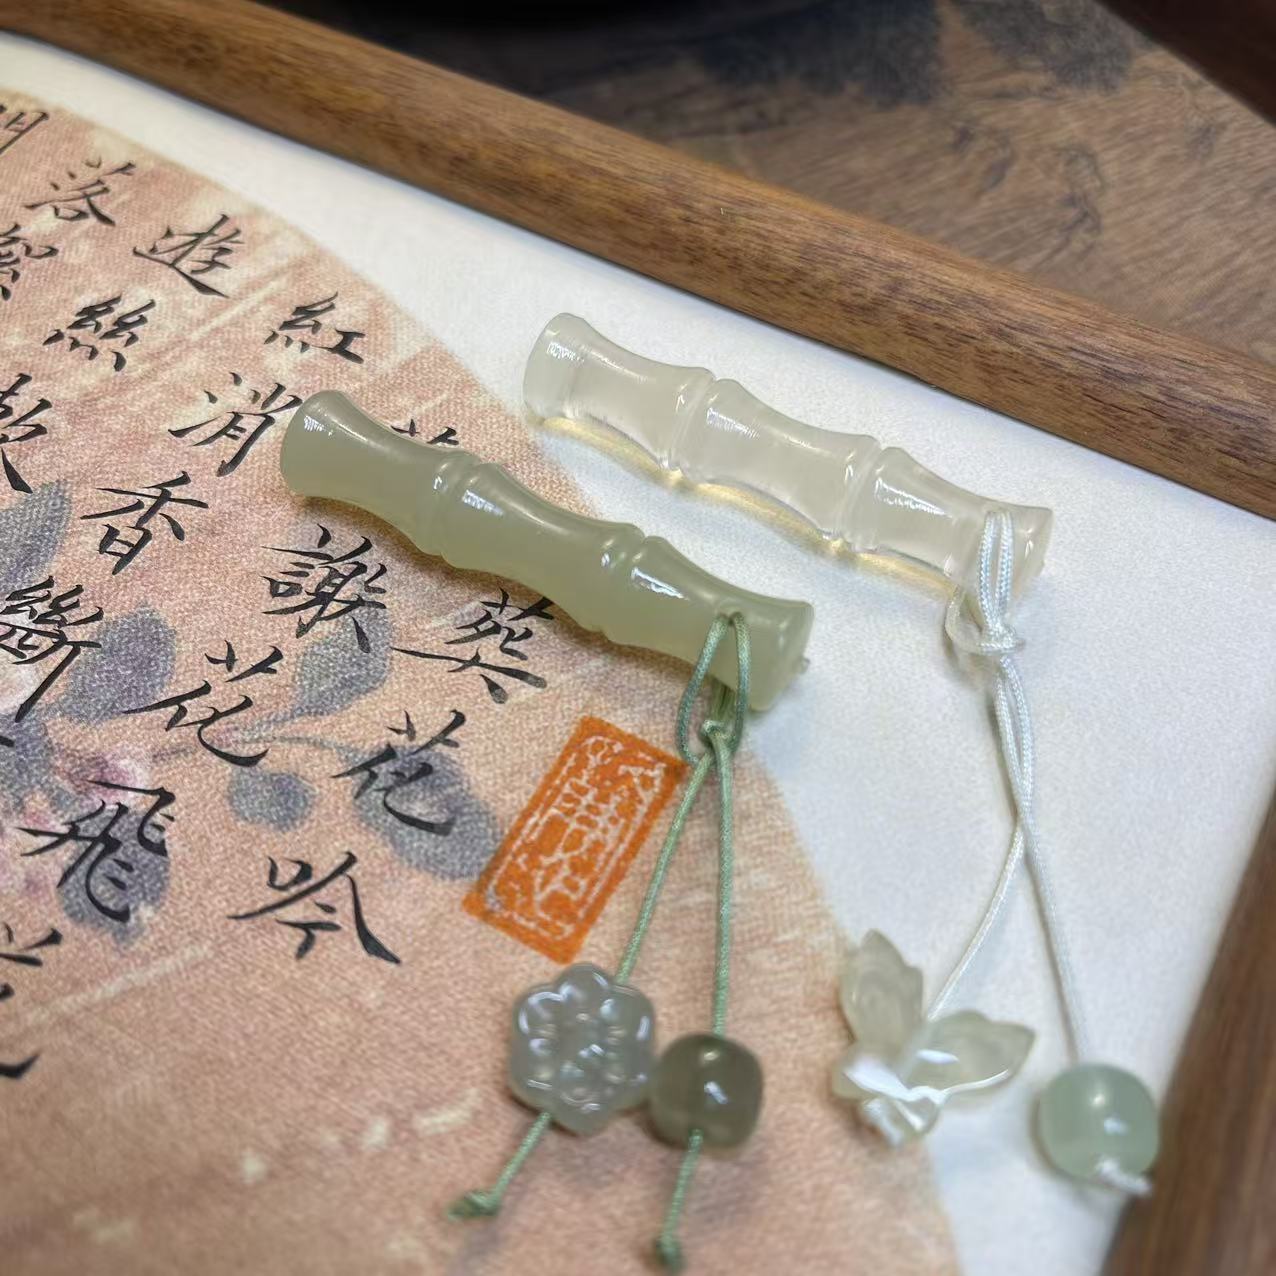 葬花吟
謝花飛
紅消香斷
遊絲
落絮